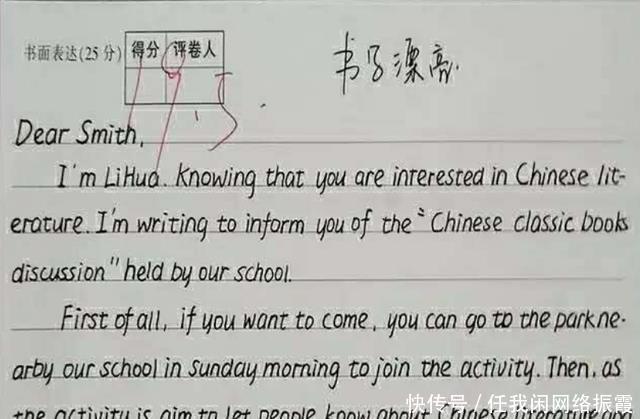 书面表达(25分)
得分 评卷人
书写漂亮.
Dear Smith,
I'm LiHua. Knowing that you are interested in Chinese lit-
erature. I'm writing to inform you of the "Chinese classic books
discussion" held by our school.
First of all, if you want to come, you can go to the park ne-
arby our school in Sunday morning to join the activity. Then, as
the activity is aim to let people know about Chinese literature and
快传号/任我闲网络振霞